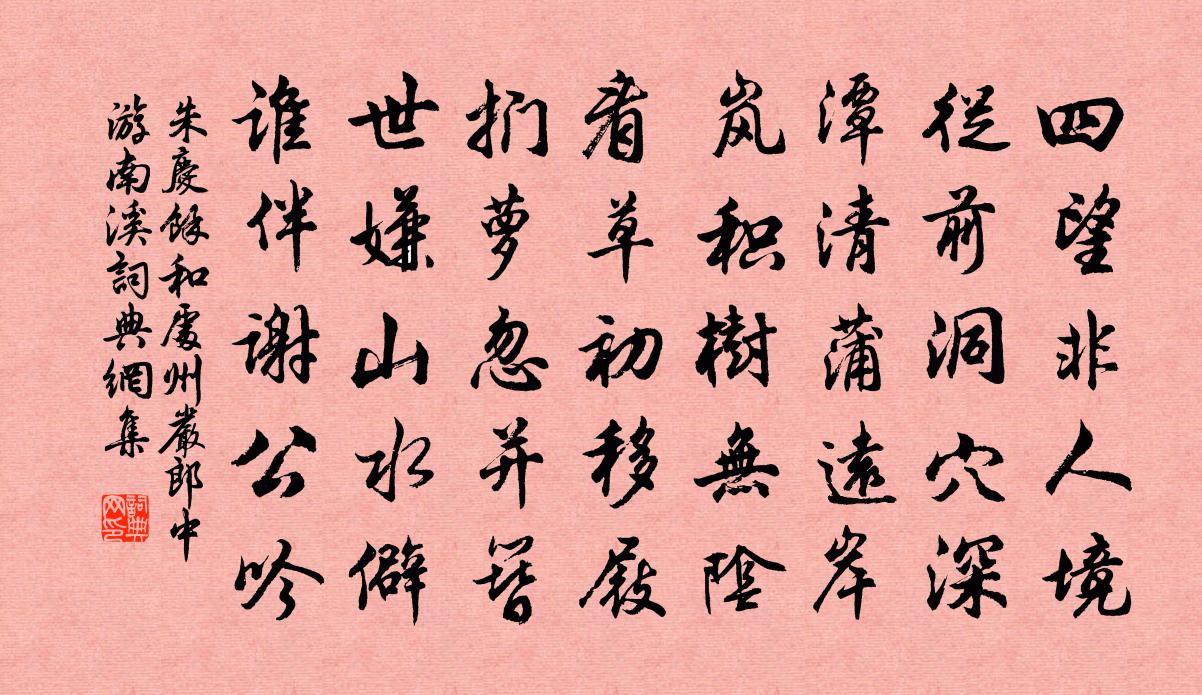 四望非人境
從前洞穴深
潭清蒲遠岸
岚积樹無陰
看草初移屐
捫萝忽并簪
世嫌山水僻
誰伴谢公吟
朱慶餘和處州嚴郎中
游南溪詞典網集
詞典网印